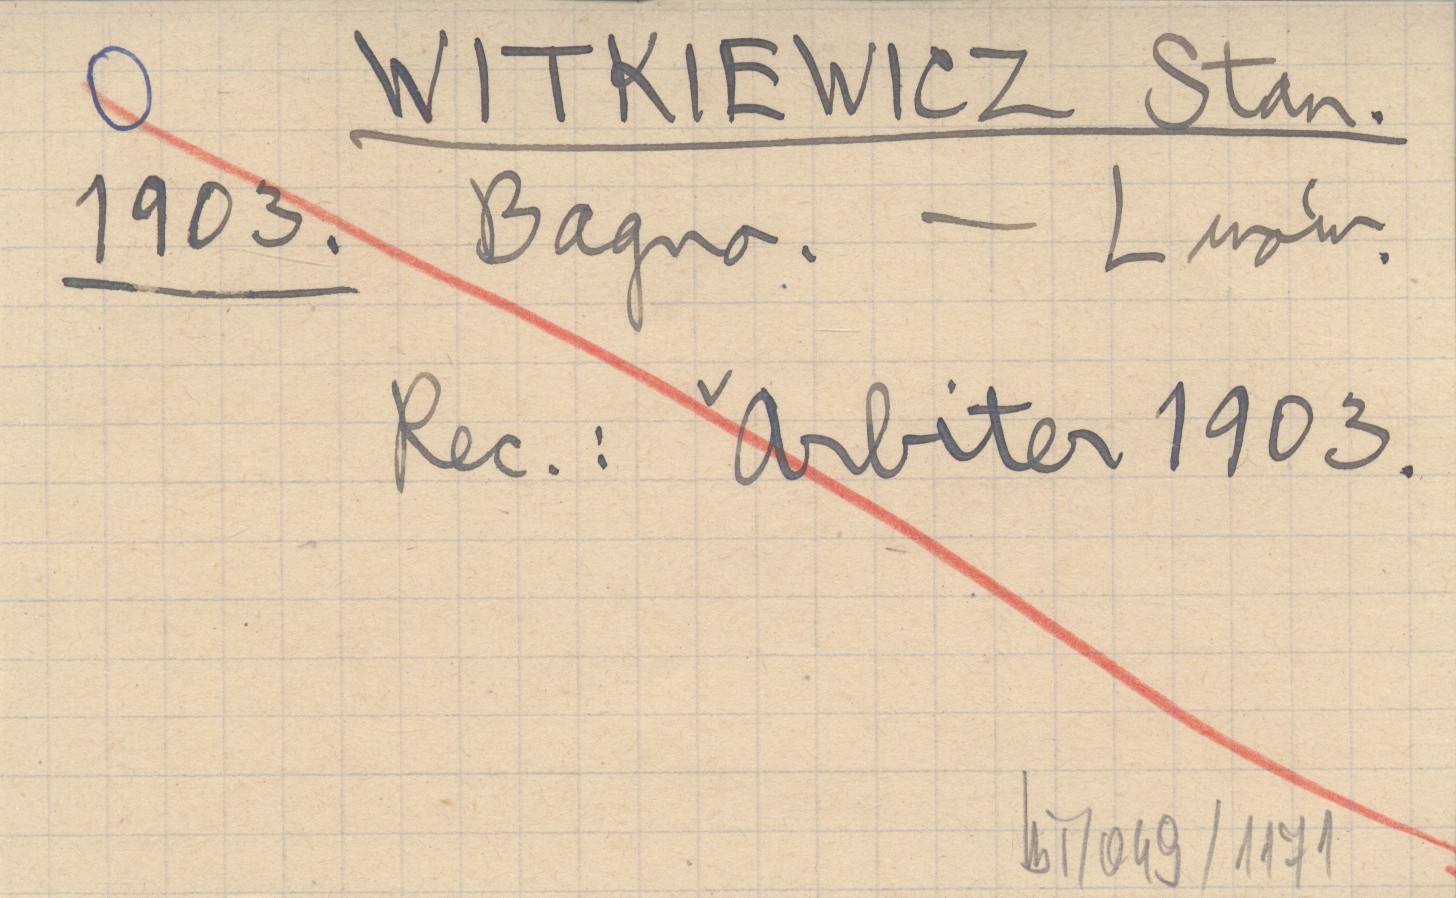 WITKIEWICZ Stan.
1903. Bagno. — Lwów.
Rec.: Arbiter 1903.
/049/1171